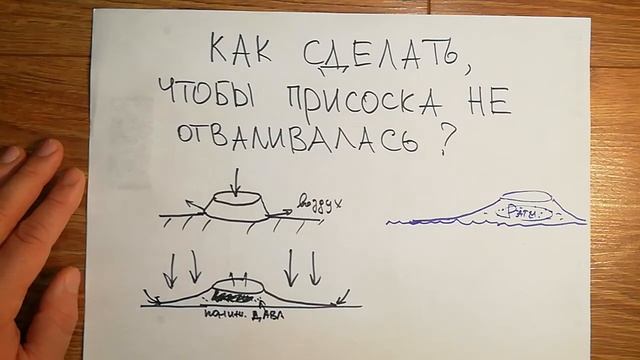 КАК СДЕЛАТЬ,
ЧТОБЫ ПРИСОСКА НЕ
ОТВАЛИВАЛАСЬ?
воздух
Pатм
пониж. давл